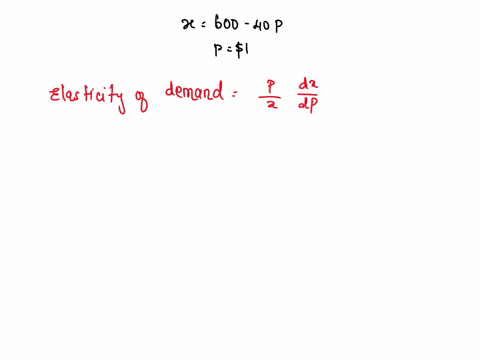 x = 600 - 40 P
P = $1
Elasticity of demand = P/x dx/dP